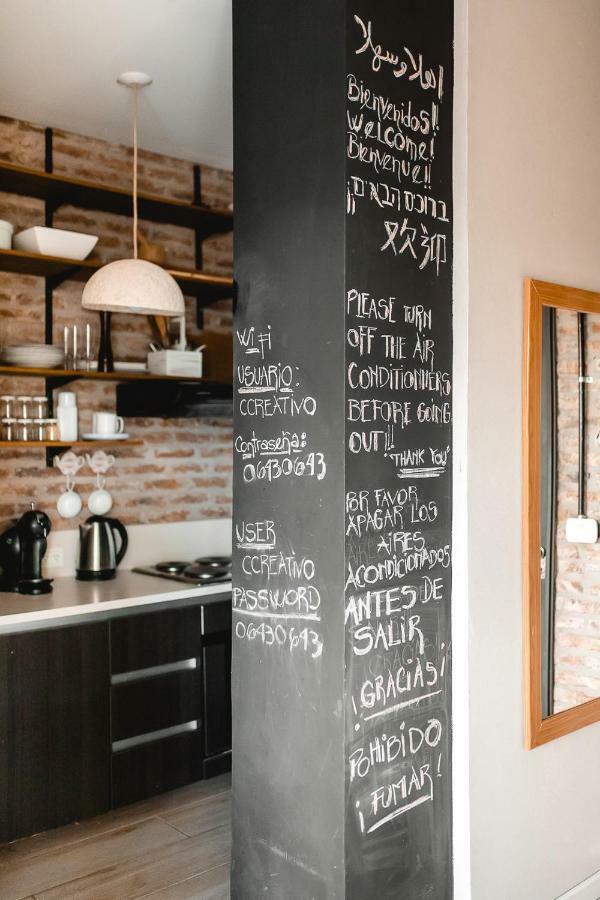 Wifi
USUARIO:
CCREATIVO
Contraseña:
06430643
USER
CCREATIVO
PASSWORD
06430643
اهلا وسهلا
Bienvenidos!!
Welcome!
Bienvenue!!
ברוכים הבאים!!
欢迎
PLEASE TURN
OFF THE AIR
CONDITIONNERS
BEFORE GOING
OUT!!
"THANK YOU"
POR FAVOR
APAGAR LOS
AIRES
ACONDICIONADOS
ANTES DE
SALIR
¡GRACIAS!
POHIBIDO
¡FUMAR!